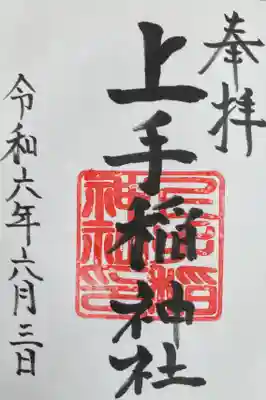 奉拝
上手稲神社
令和六年六月三日